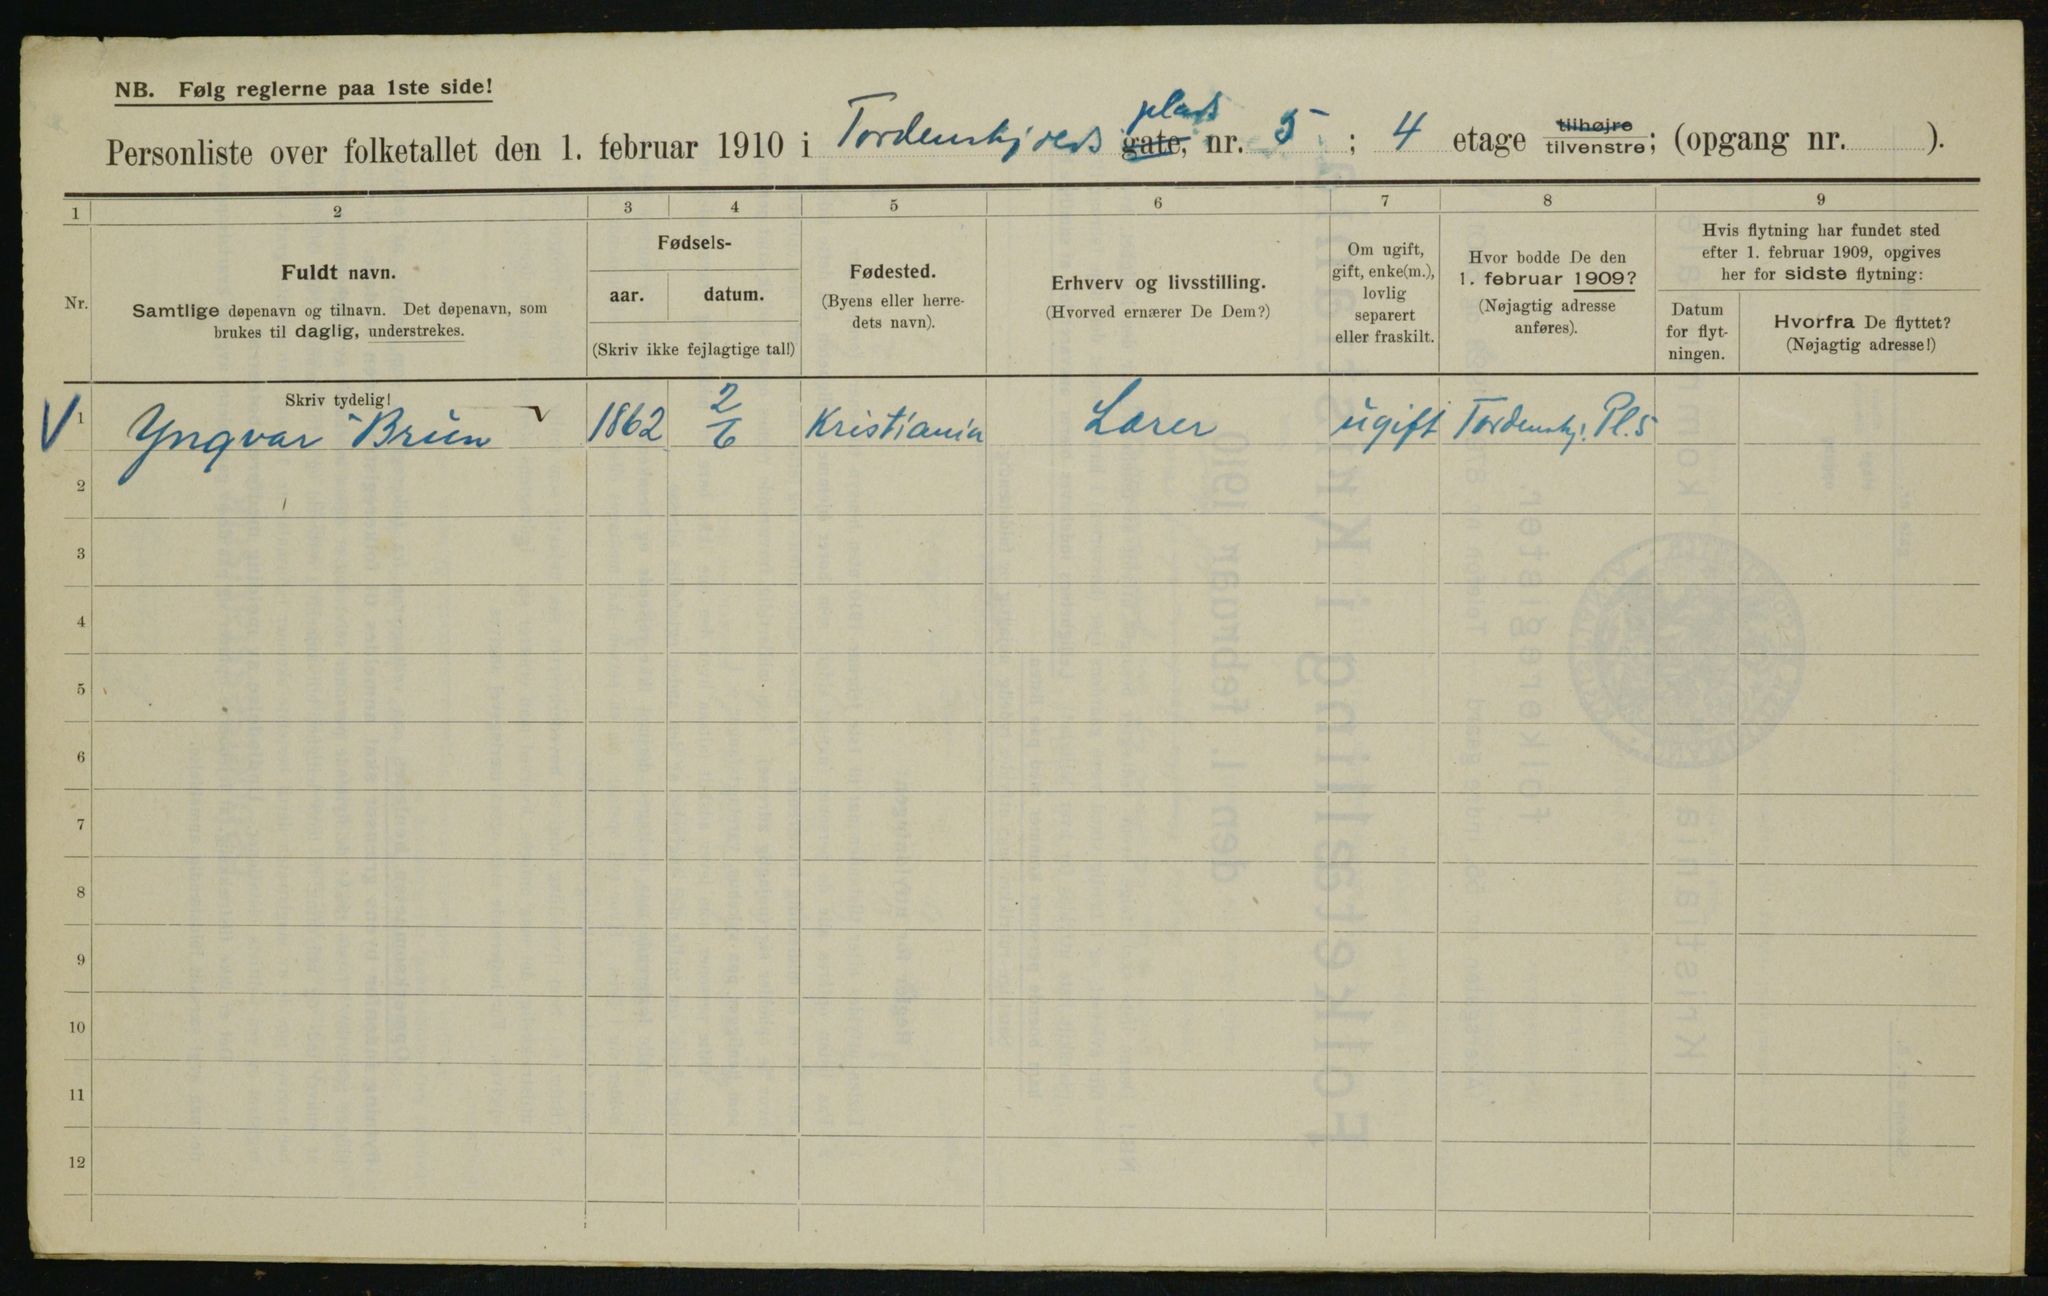 NB. Følg reglerne paa 1ste side!
Personliste over folketallet den 1. februar 1910 i Tordenskjolds gate, plads nr. 5; 4 etage tilhøjre tilvenstre; (opgang nr. ).
1 2 3 4 5 6 7 8 9
Nr.
Fuldt navn.
Samtlige døpenavn og tilnavn. Det døpenavn, som
brukes til daglig, understrekes.
Skriv tydelig!
Fødsels-
aar. datum.
(Skriv ikke fejlagtige tal!)
Fødested.
(Byens eller herre-
dets navn).
Erhverv og livsstilling.
(Hvorved ernærer De Dem?)
Om ugift,
gift, enke(m.),
lovlig
separert
eller fraskilt.
Hvor bodde De den
1. februar 1909?
(Nøjagtig adresse
anføres).
Hvis flytning har fundet sted
efter 1. februar 1909, opgives
her for sidste flytning:
Datum
for flyt-
ningen.
Hvorfra De flyttet?
(Nøjagtig adresse!)
1 Yngvar Brun 1862 2/6 Kristiania Lærer ugift Tordenskj. Pl. 5
2
3
4
5
6
7
8
9
10
11
12